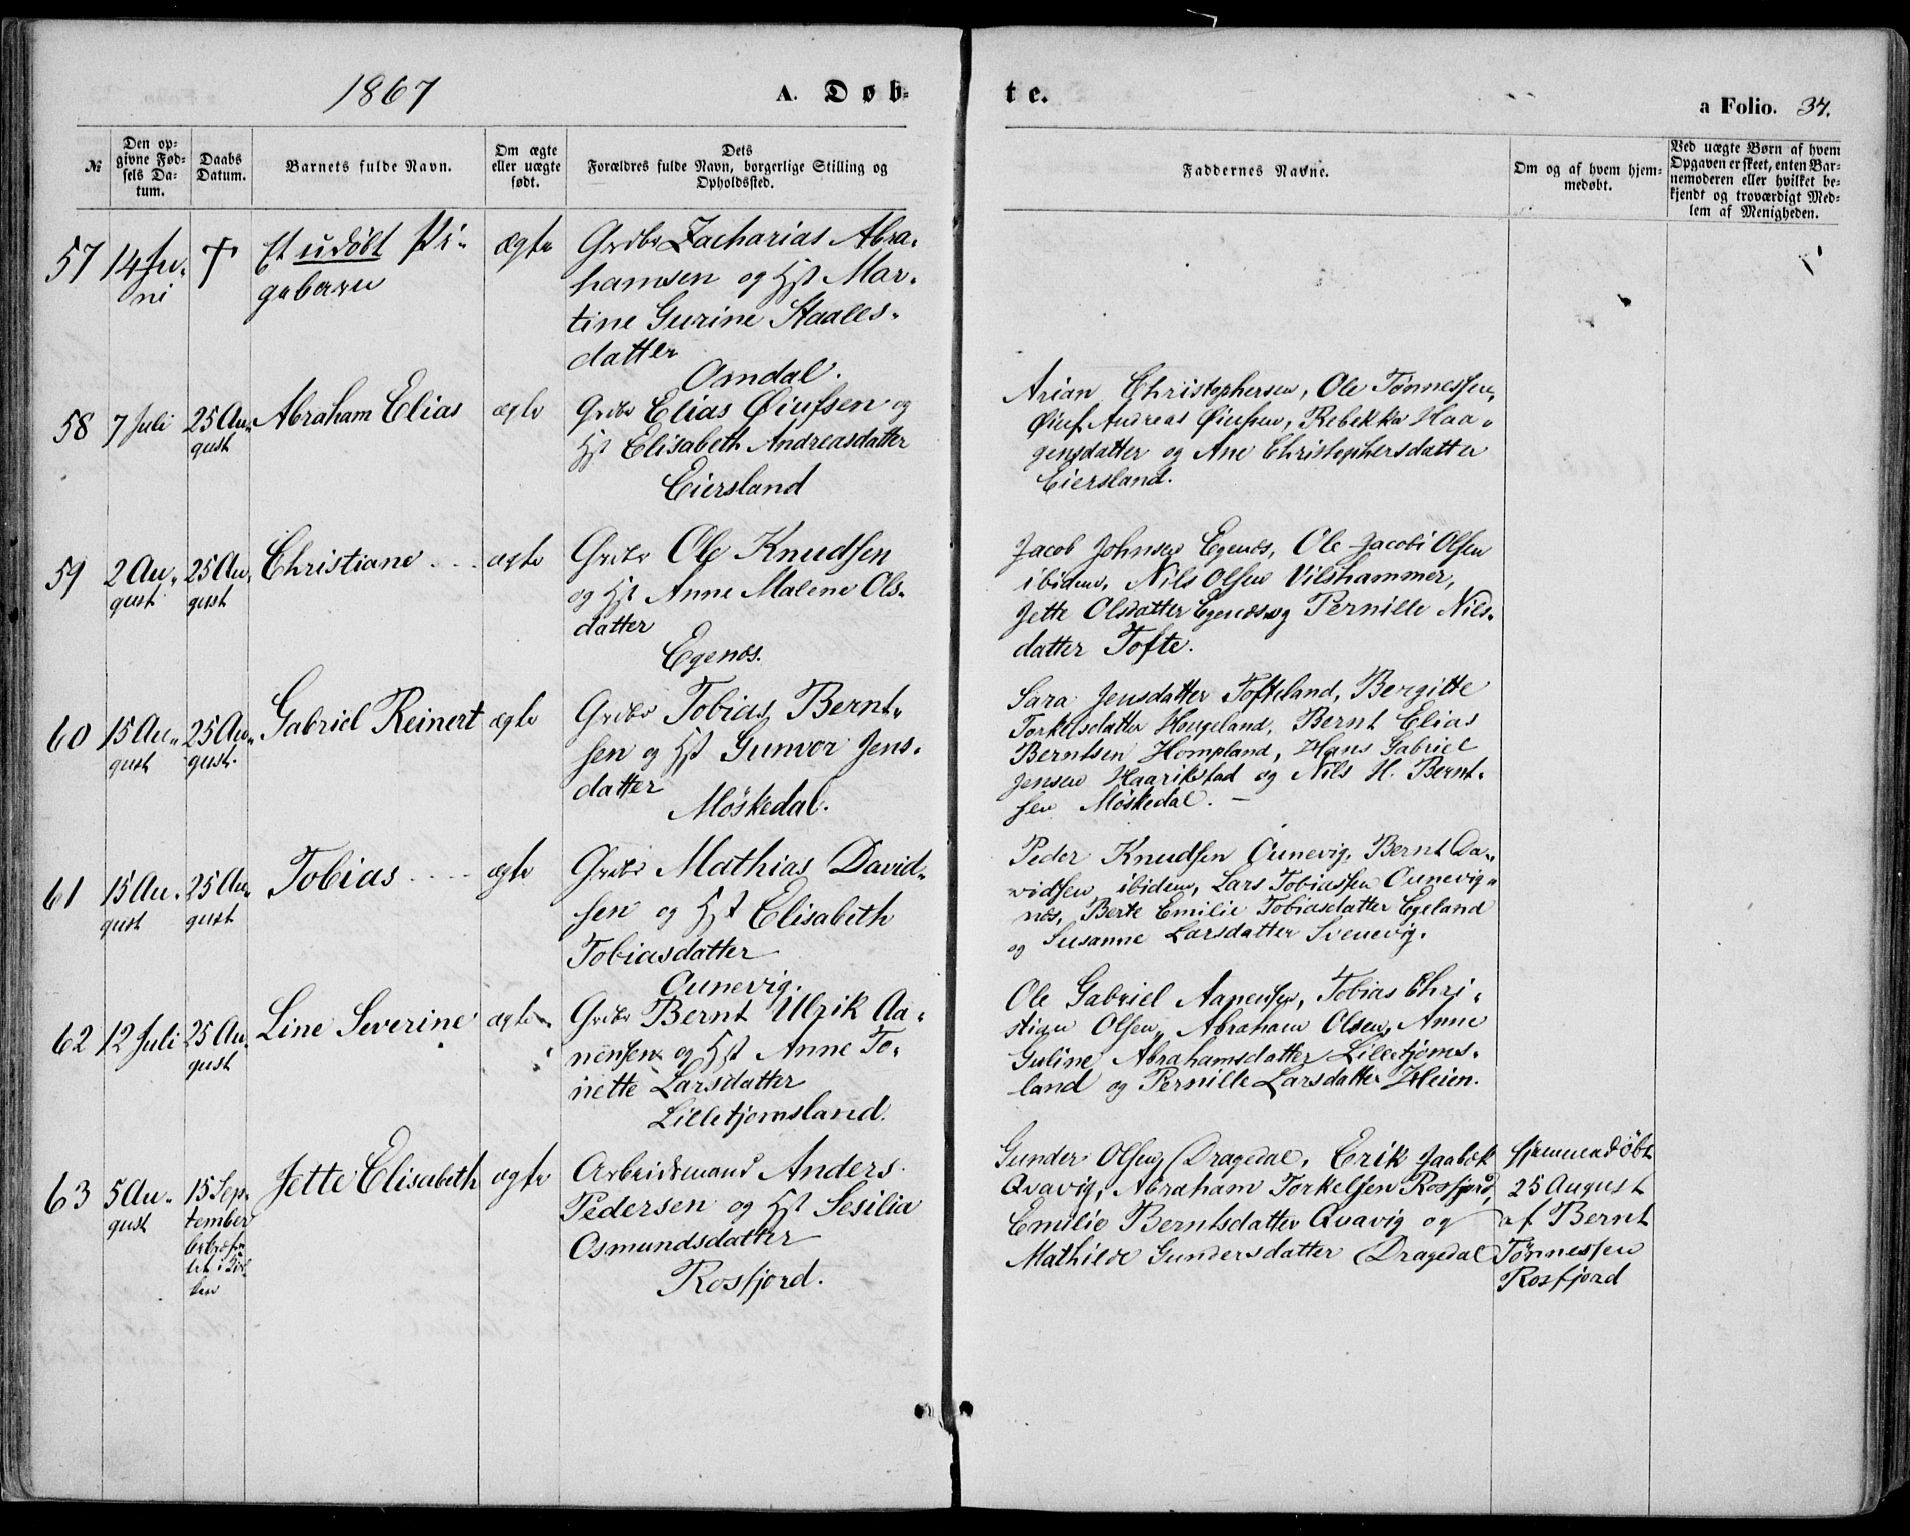 1867 A. Døb- te. a Folio. 34.
№
Den op-
givne Fød-
sels Da-
tum.
Daabs
Datum.
Barnets fulde Navn.
Om ægte
eller uægte
født.
Dets
Forældres fulde Navn, borgerlige Stilling og
Opholdssted.
Faddernes Navne.
Om og af hvem hjem-
medøbt.
Ved uægte Børn af hvem
Opgaven er skeet, enten Bar-
nemoderen eller hvilket be-
kjendt og troværdigt Med-
lem af Menigheden.
57 14 Ju-
ni
†
Et udøbt Pi-
gebarn
ægte
Grdbr Zacharias Abra-
hamsen og Hst Mar-
tine Gurine Staales-
datter
Omdal.
58 7 Juli
25 Au-
gust
Abraham Elias
ægte
Grdbr Elias Øiufsen og
Hst Elisabeth Andreasdatter
Eiersland
Arian Christophersen, Ole Tønnessen,
Øiuf Andreas Øiufsen, Rebekka Haa-
gensdatter og Ane Christophersdatter
Eiersland.
59 2 Au-
gust
25 Au-
gust
Christiane
ægte
Grdbr Ole Knudsen
og Hst Anne Malene Ols-
datter
Egenæs.
Jacob Johnsen Egenæs, Ole Jacobi Olsen
ibidem, Nils Olsen Vilshammer,
Jette Olsdatter Egenæs og Pernille Nils-
datter Tofte.
60 15 Au-
gust
25 Au-
gust.
Gabriel Reinert
ægte
Grdbr Tobias Bernt-
sen og Hst Gunvor Jens-
datter
Møskedal.
Sara Jensdatter Tofteland, Bergitte
Torkelsdatter Hougeland, Bernt Elias
Berntsen Hompland, Hans Gabriel
Jensen Haarikstad og Nils H. Bernt-
sen Møskedal. –
61 15 Au-
gust
25 Au-
gust
Tobias
ægte
Grdbr Mathias David-
sen og Hst Elisabeth
Tobiasdatter
Ounevig.
Peder Knudsen Ounevig, Bernt Da-
vidsen ibidem, Lars Tobiassen Ounevig-
næs, Berte Emilie Tobiasdatter Egeland
og Susanne Larsdatter Svenevig.
62 12 Juli
25 Au-
gust
Line Severine
ægte
Grdbr Bernt Ulrik Aa-
nensen og Hst Anne To-
nette Larsdatter
Lilletjomsland.
Ole Gabriel Aanensen, Tobias Chri-
stian Olsen, Abraham Olsen, Anne
Guline Abrahamsdatter Lilletjoms-
land og Pernille Larsdatter Heien.
63 5 Au-
gust
15 Sep-
tember
Jette Elisabeth
ægte
Arbeidsmand Anders
Pedersen og Hst Sesilia
Osmundsdatter
Rosfjord.
Gunder Olsen Dragedal, Erik Jaabæk
Qvavig, Abraham Torkelsen Rosfjord,
Emilie Berntsdatter Qvavig og
Mathilde Gundersdatter Dragedal
Hjemmedøbt
25 August
af Bernt
Tønnessen
Rosfjord